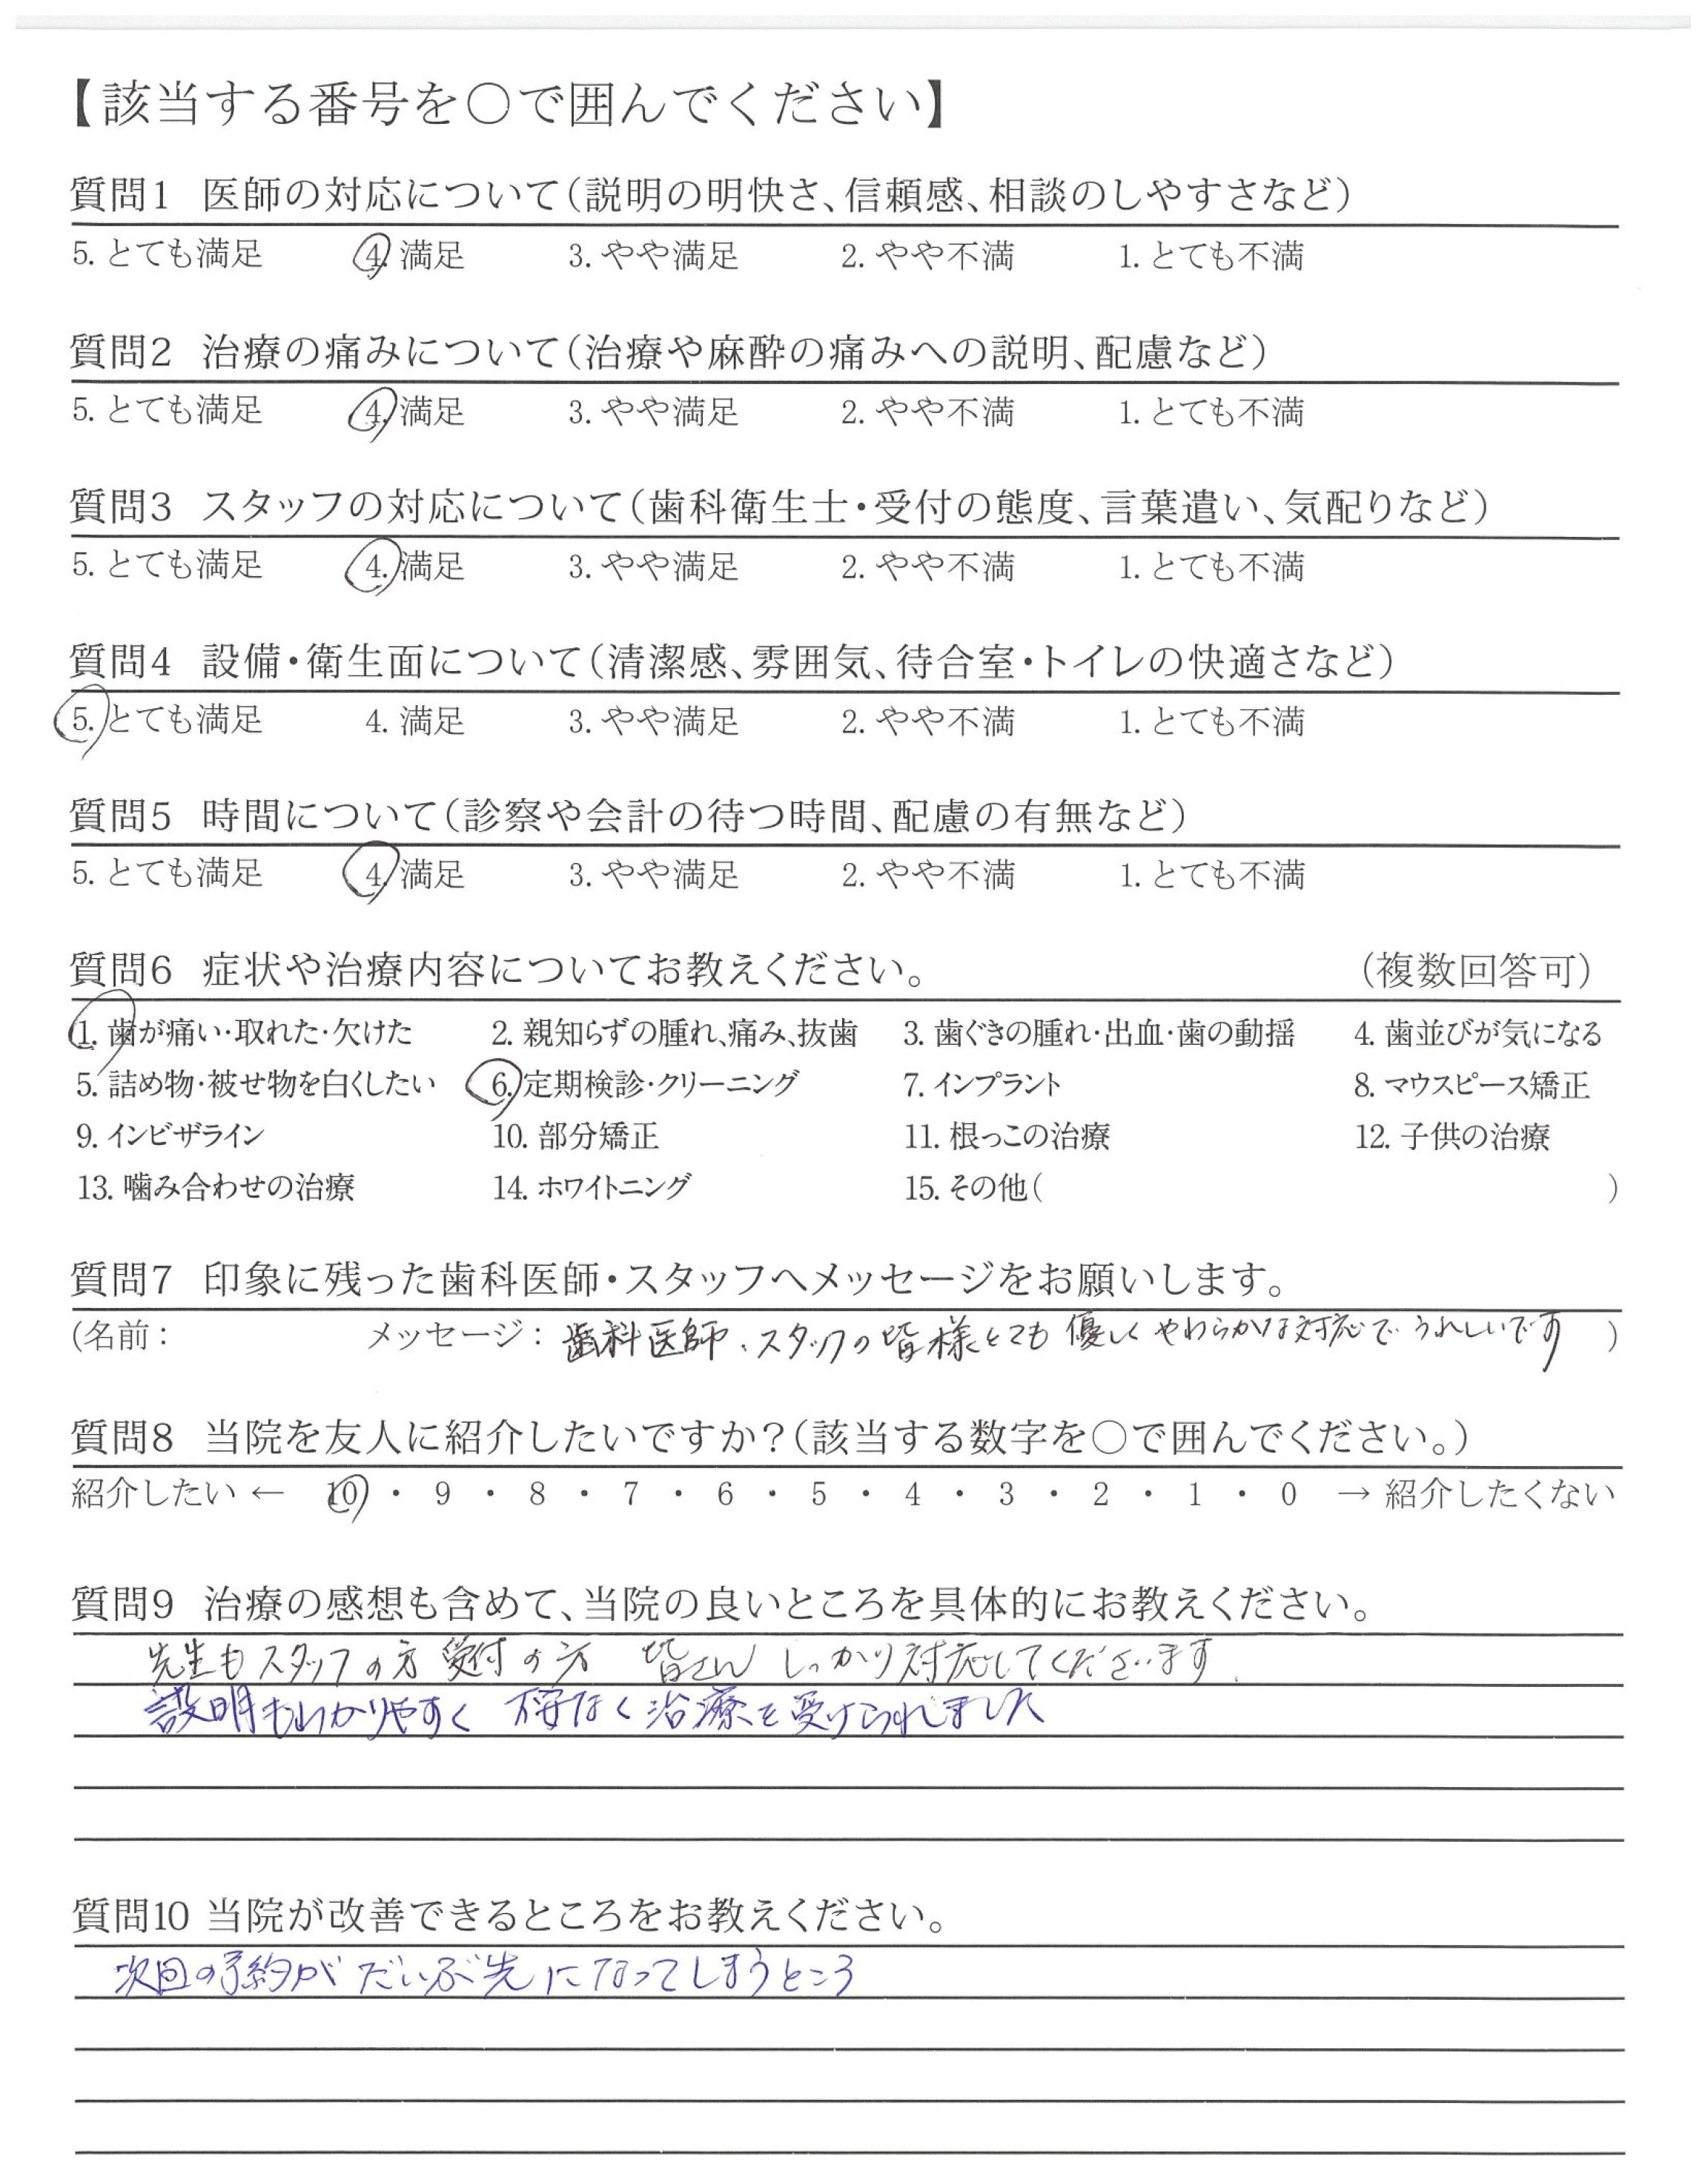 【該当する番号を〇で囲んでください】
質問1 医師の対応について(説明の明快さ、信頼感、相談のしやすさなど)
5. とても満足 4. 満足 3. やや満足 2. やや不満 1. とても不満
質問2 治療の痛みについて(治療や麻酔の痛みへの説明、配慮など)
5. とても満足 4. 満足 3. やや満足 2. やや不満 1. とても不満
質問3 スタッフの対応について(歯科衛生士・受付の態度、言葉遣い、気配りなど)
5. とても満足 4. 満足 3. やや満足 2. やや不満 1. とても不満
質問4 設備・衛生面について(清潔感、雰囲気、待合室・トイレの快適さなど)
5. とても満足 4. 満足 3. やや満足 2. やや不満 1. とても不満
質問5 時間について(診察や会計の待つ時間、配慮の有無など)
5. とても満足 4. 満足 3. やや満足 2. やや不満 1. とても不満
質問6 症状や治療内容についてお教えください。 (複数回答可)
1. 歯が痛い・取れた・欠けた 2. 親知らずの腫れ、痛み、抜歯 3. 歯ぐきの腫れ・出血・歯の動揺 4. 歯並びが気になる
5. 詰め物・被せ物を白くしたい 6. 定期検診・クリーニング 7. インプラント 8. マウスピース矯正
9. インビザライン 10. 部分矯正 11. 根っこの治療 12. 子供の治療
13. 噛み合わせの治療 14. ホワイトニング 15. その他( )
質問7 印象に残った歯科医師・スタッフへメッセージをお願いします。
(名前: メッセージ: 歯科医師、スタッフの皆様とても優しくやわらかな対応でうれしいです )
質問8 当院を友人に紹介したいですか?(該当する数字を〇で囲んでください。)
紹介したい ← 10 ・ 9 ・ 8 ・ 7 ・ 6 ・ 5 ・ 4 ・ 3 ・ 2 ・ 1 ・ 0 → 紹介したくない
質問9 治療の感想も含めて、当院の良いところを具体的にお教えください。
先生もスタッフの方 受付の方 皆さん しっかり対応してくださいます.
説明もわかりやすく 不安なく治療を受けられました
質問10 当院が改善できるところをお教えください。
次回の予約がだいぶ先になってしまうところ